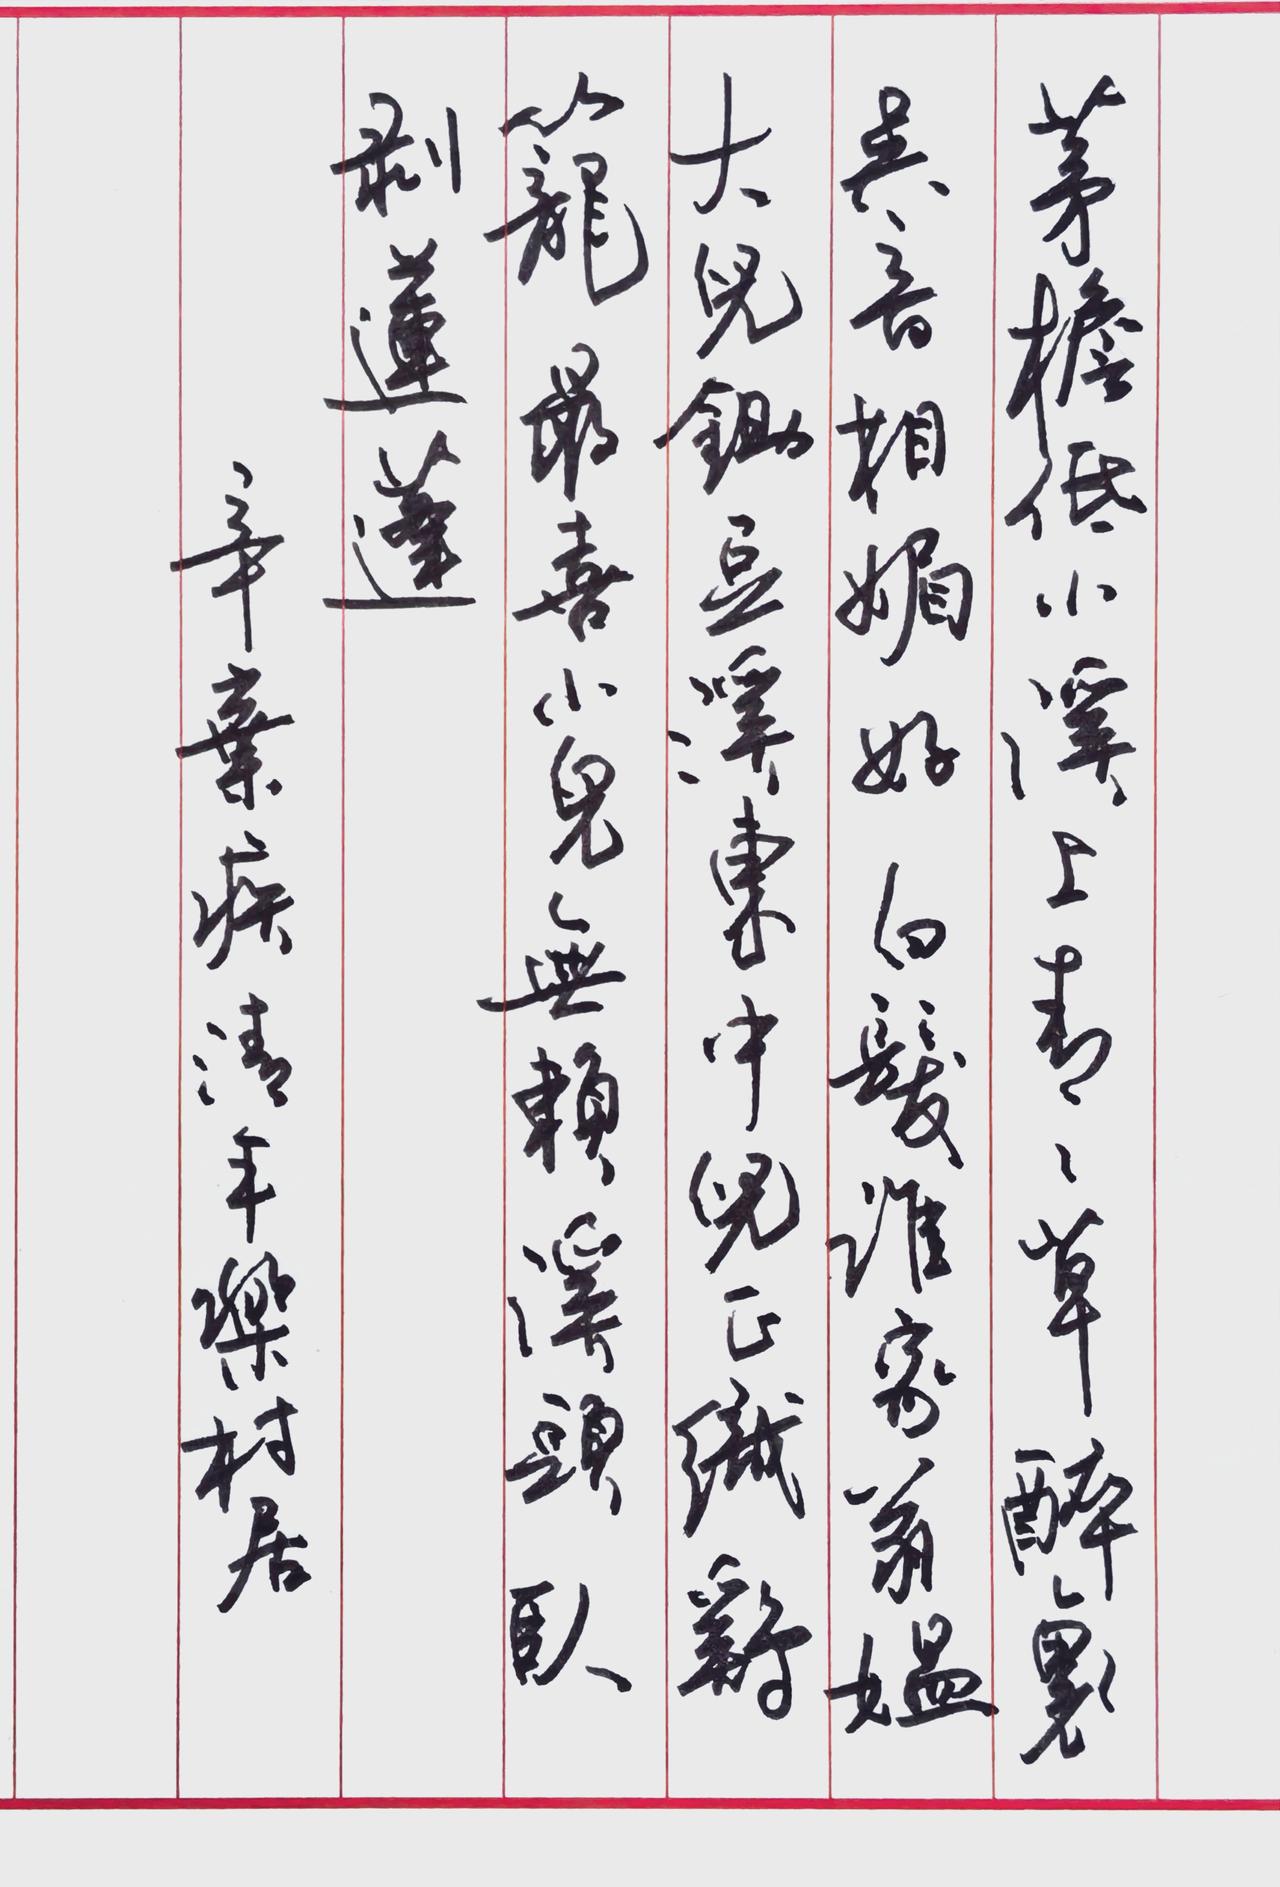 茅檐低小溪上青々草醉裏
吳音相媚好白髮誰家翁媼
大兒鋤豆溪東中兒正織雞
籠最喜小兒無賴溪頭臥
剥蓮蓬
辛棄疾清平樂村居